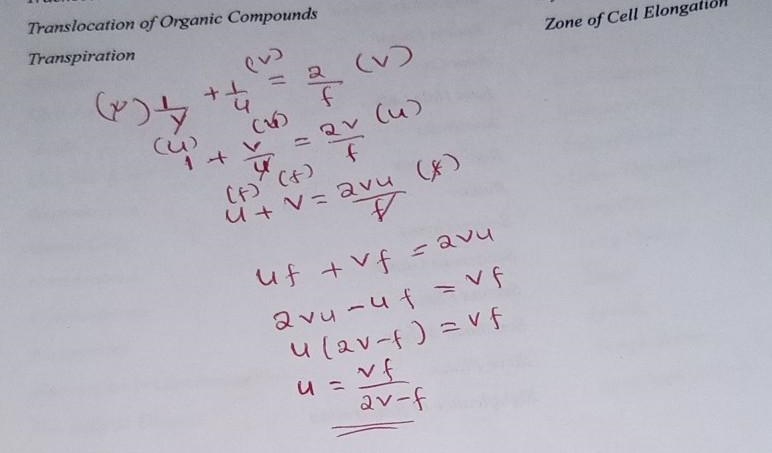 Translocation of Organic Compounds
Zone of Cell Elongation
Transpiration
(v) 1/v + 1/u (v) = 2/f (v)
(u) 1 + v/u (u) = 2v/f (u)
(f) u + (f) v = 2vu/f (f)
uf + vf = 2vu
2vu - uf = vf
u(2v-f) = vf
u = vf/2v-f